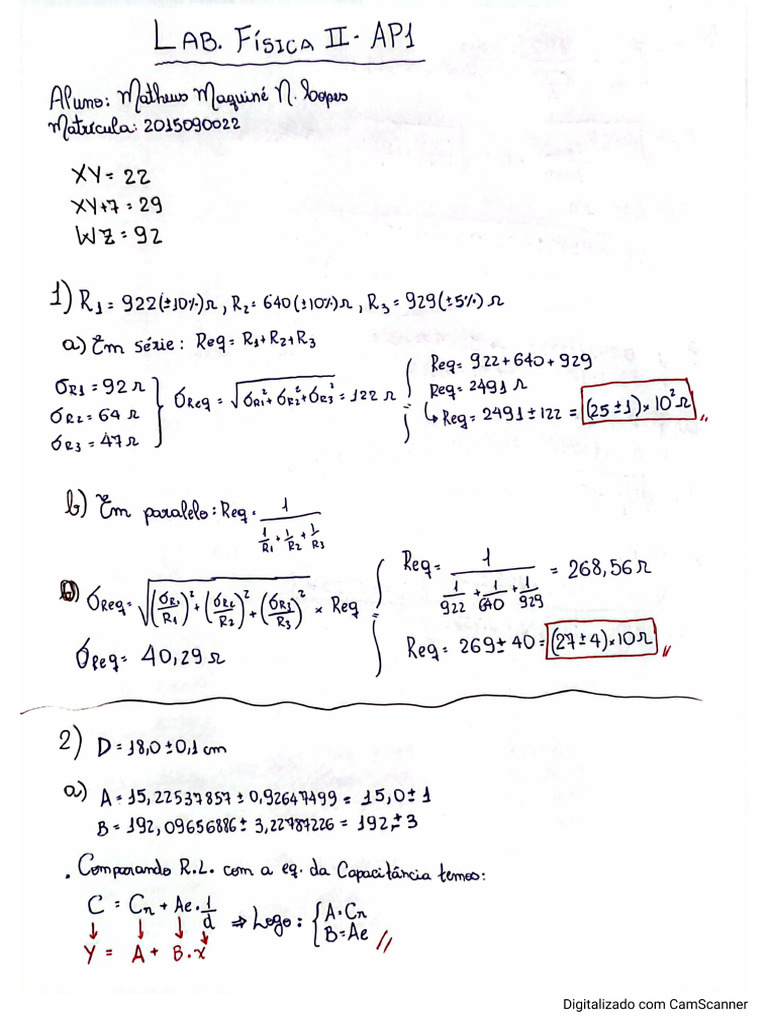 LAB. FÍSICA II - AP1
Aluno: Matheus Maquiné N. Lopes
Matrícula: 2015090022
XY = 22
XY+7 = 29
WZ = 92
1) R1 = 922(±10%)Ω, R2 = 640(±10%)Ω, R3 = 929(±5%)Ω
a) Em série: Req = R1+R2+R3
σR1 = 92Ω
σR2 = 64Ω
σR3 = 47Ω
σReq = √(σR1² + σR2² + σR3²) = 122Ω
Req = 922+640+929
Req = 2491Ω
↳ Req = 2491 ± 122 = (25 ± 1) × 10² Ω //
b) Em paralelo: Req = 1/(1/R1 + 1/R2 + 1/R3)
σReq = √((σR1/R1)² + (σR2/R2)² + (σR3/R3)²) × Req
σReq = 40,29Ω
Req = 1/(1/922 + 1/640 + 1/929) = 268,56Ω
Req = 269 ± 40 = (27 ± 4) × 10Ω //
2) D = 18,0 ± 0,1 cm
a) A = 15,22537857 ± 0,92647499 = 15,0 ± 1
B = 192,09656886 ± 3,22787226 = 192,± 3
. Comparando R.L. com a eq. da Capacitância temos:
C = Cn + Ae · 1/d ⇒ Logo: { A = Cn
B = Ae //
↓ ↓ ↓ ↓
Y = A + B · x
Digitalizado com CamScanner